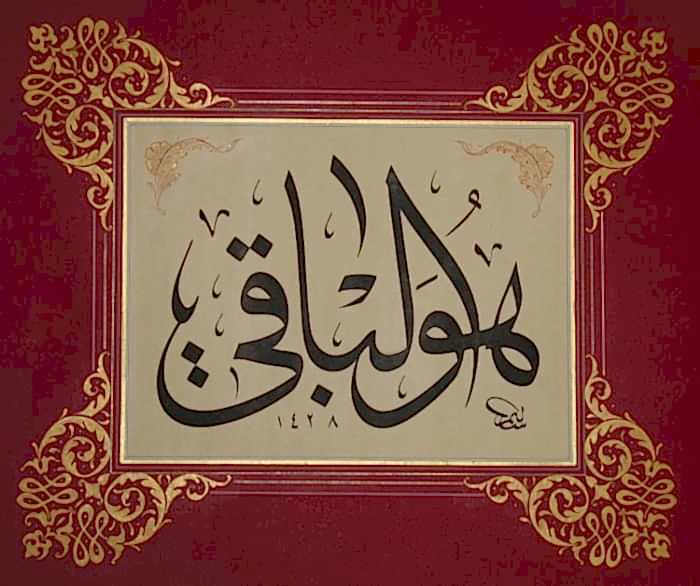 هُوَ الباقي
١٤٢٨